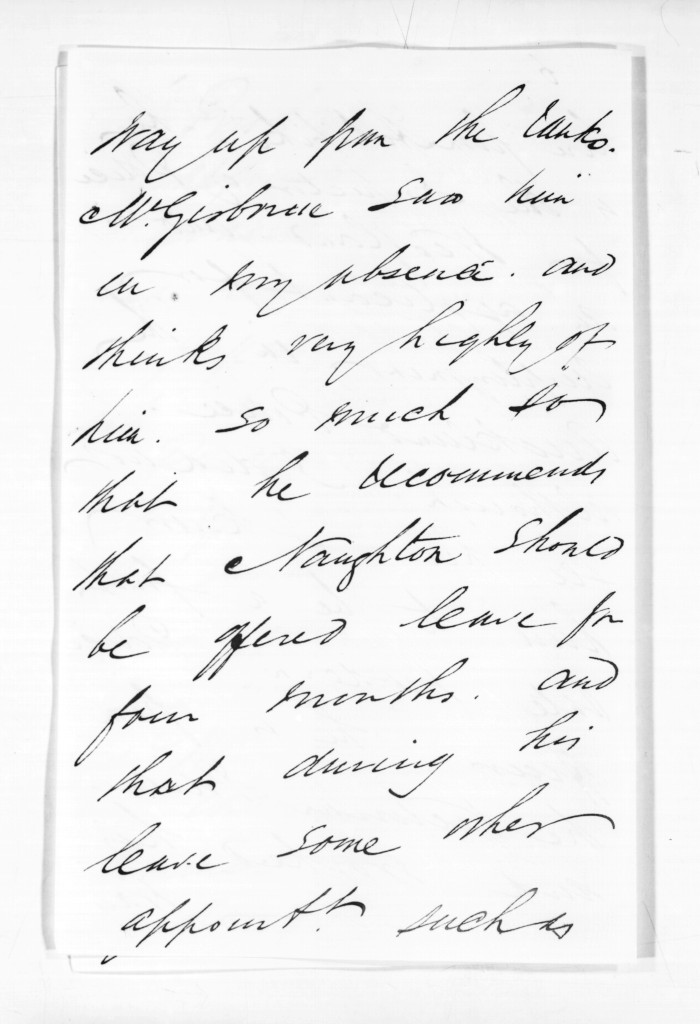 way up from the Tauke.
Mr. Gisborne saw him
in my absence. and
thinks very highly of
him. so much so
that he recommends
that Naughton should
be offered leave for
four months. and
that during his
leave some other
appointt. such as